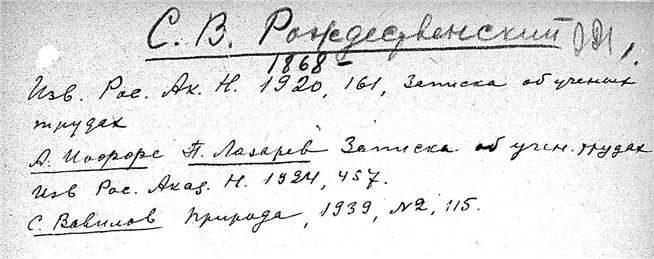 С. В. Рождественский
1868 –
Изв. Рос. Ак. Н. 1920, 161, Записка об ученых
трудах
А. Иоффе П. Лазарев Записка об учен. трудах
Изв Рос. Акад. Н. 1924, 457.
С. Вавилов Природа, 1939, №2, 115.